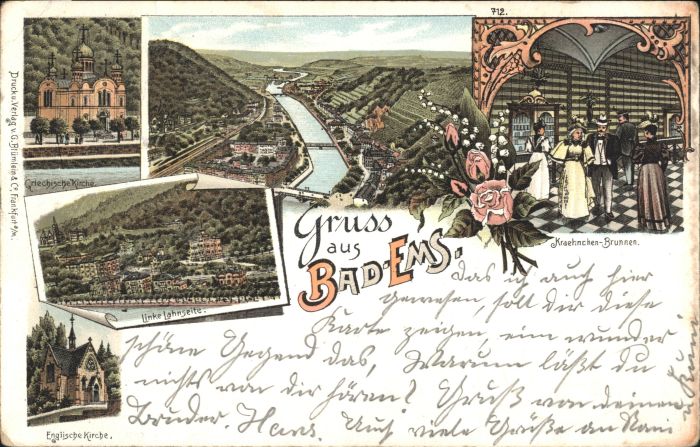 712.
Druck u. Verlag v. G. Blümlein & Co, Frankfurt a/m.
Griechische Kirche.
Kraehnchen-Brunnen.
Gruss
aus
BAD-EMS.
Linke Lahnseite.
Englische Kirche.
Das ich auch hier
gewesen, soll dir diese
Karte zeigen, ein wunder
schöne Gegend das, Warum läßt du
nichts von dir hören? Gruß von deinem
Bruder. Hans. Auch viele Grüße an